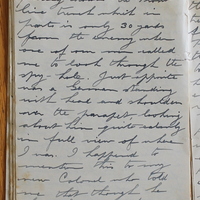 live trench which in
parts is only 30 yards
from the enemy when
one of our men called
me to look through the
spy hole. Just opposite
was a German standing
with head and shoulders
over the parapet looking
about him quite calmly
in full view of where
I was. I happened
mention this to my
own Colonel who told
me that though he